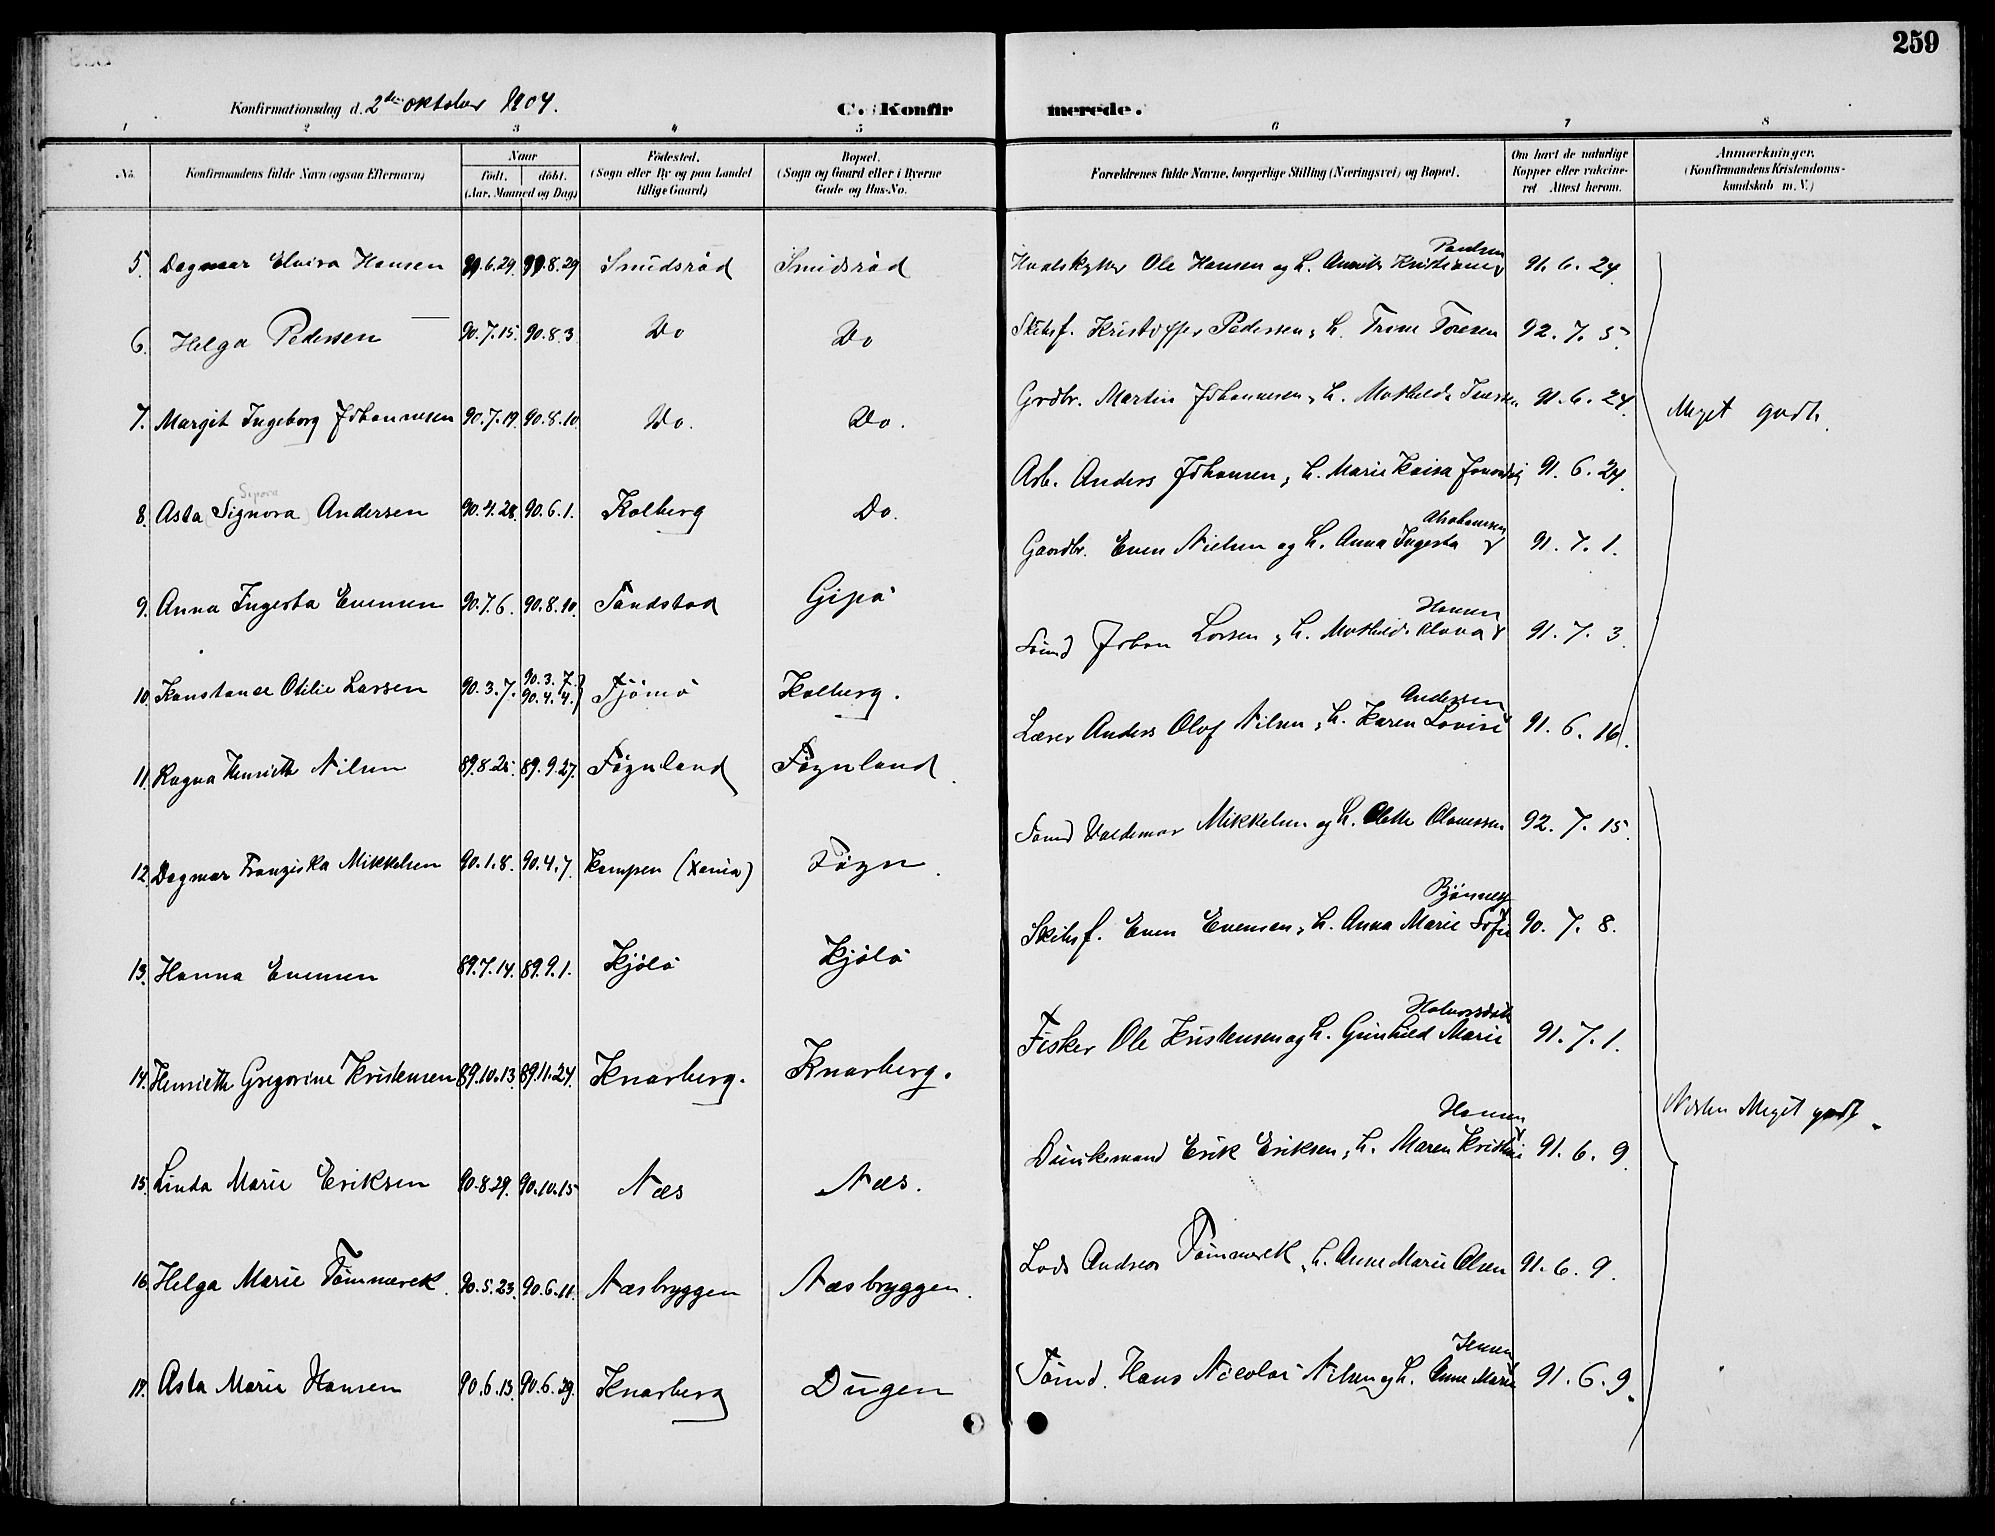 259
Konfirmationsdag d. 2den oktober 1904.
C. Konfirmerede.
1 2 3 4 5 6 7 8
No. Konfirmandens fulde Navn (ogsaa Efternavn) Naar født. døbt. (Aar, Maaned og Dag) Fødested. (Sogn eller By og paa Landet tillige Gaard) Bopæl. (Sogn og Gaard eller i Byerne Gade og Hus-No. Forældrenes fulde Navne, borgerlige Stilling (Næringsvei) og Bopæl. Om havt de naturlige Kopper eller vakcineret Attest herom. Anmærkninger. (Konfirmandens Kristendomskundskab m. V.)
5. Dagmar Elvira Hansen 90.6.29. 90.8.29 Smidsrød Smidsrød Hvalskytter Ole Hansen og h. Kristiane Paulsen 91.6.24.
6. Helga Pedersen 90.7.15. 90.8.3 Do Do Skibsf. Kristoffer Pedersen, h. Trine Toresen 92.7.5.
7. Margit Ingeborg Johannesen 90.7.19. 90.8.10. Do. Do. Grdbr. Martin Johannesen, h. Mathilde 91.6.24. Meget godt.
8. Asta (Signora) Sepora Andersen 90.4.28. 90.6.1. Kolberg Do. Arb. Anders Johansen, h. Marie Kaisa 91.6.24.
9. Anna Ingerta Evensen 90.7.6. 90.8.10. Sandstad Gipø Gaardbr. Even Nielsen og h. Anna Ingerta Abrahamsen 91.7.1.
10. Konstance Otilie Larsen 90.3.7. 90.3.7. 90.4.4. Tjømø Kolberg. Sømd Johan Larsen, h. Mathilde Olava Hansen 91.7.3.
11. Ragna Henriette Nilsen 89.8.25. 89.9.27. Føynland Føynland. Lærer Anders Olaf Nilsen, h. Karen Lovise Andersen 91.6.16.
12. Dagmar Franziska Mikkelsen 90.1.8. 90.4.7. Kampen (Xania) Føyn. Sømd Valdemar Mikkelsen og h. Olette 92.7.15.
13. Hanna Evensen 89.7.14. 89.9.1. Kjølø Kjølø Skibsf. Even Evensen, h. Anna Marie Sofie 90.7.8.
14. Henriette Gregorine Kristensen 89.10.13. 89.11.24. Knarberg. Knarberg. Fisker Ole Kristensen og h. Gunhild Marie Halvorsdatt 91.7.1. Næsten Meget godt.
15. Linda Marie Eriksen 90.8.29. 90.10.15 Næs Næs. Erik Eriksen, h. Maren Kristine Hansen 91.6.9.
16. Helga Marie Tømmerek. 90.5.23. 90.6.11. Næsbryggen Næsbryggen. Lods Andreas Tømmerek, h. Anne Marie Olsen 91.6.9.
17. Asta Marie Hansen 90.6.13. 90.6.29. Knarberg Dugen Sømd. Hans Nicolai Nilsen og h. Anne Marie Jensen 91.6.9.